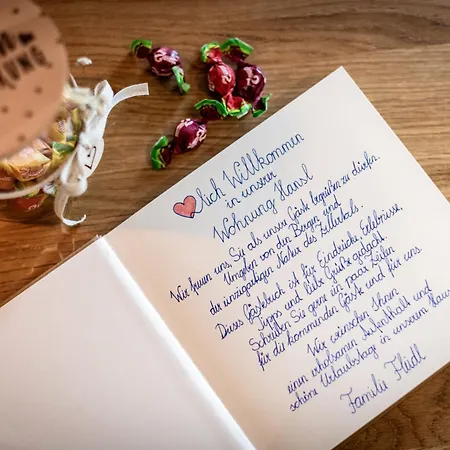 ♥lich Willkommen
in unserer
Wohnung Hansl
Wir freuen uns, Sie als unsere Gäste begrüßen zu dürfen.
Umgeben von den Bergen und
der einzigartigen Natur des Zillertals.
Dieses Gästebuch ist für Eindrücke, Erlebnisse,
Tipps und liebe Grüße gedacht.
Schreiben Sie gerne ein paar Zeilen
für die kommenden Gäste und für uns.
Wir wünschen Ihnen
einen erholsamen Aufenthalt und
schöne Urlaubstage in unserem Haus
Familie Fleidl